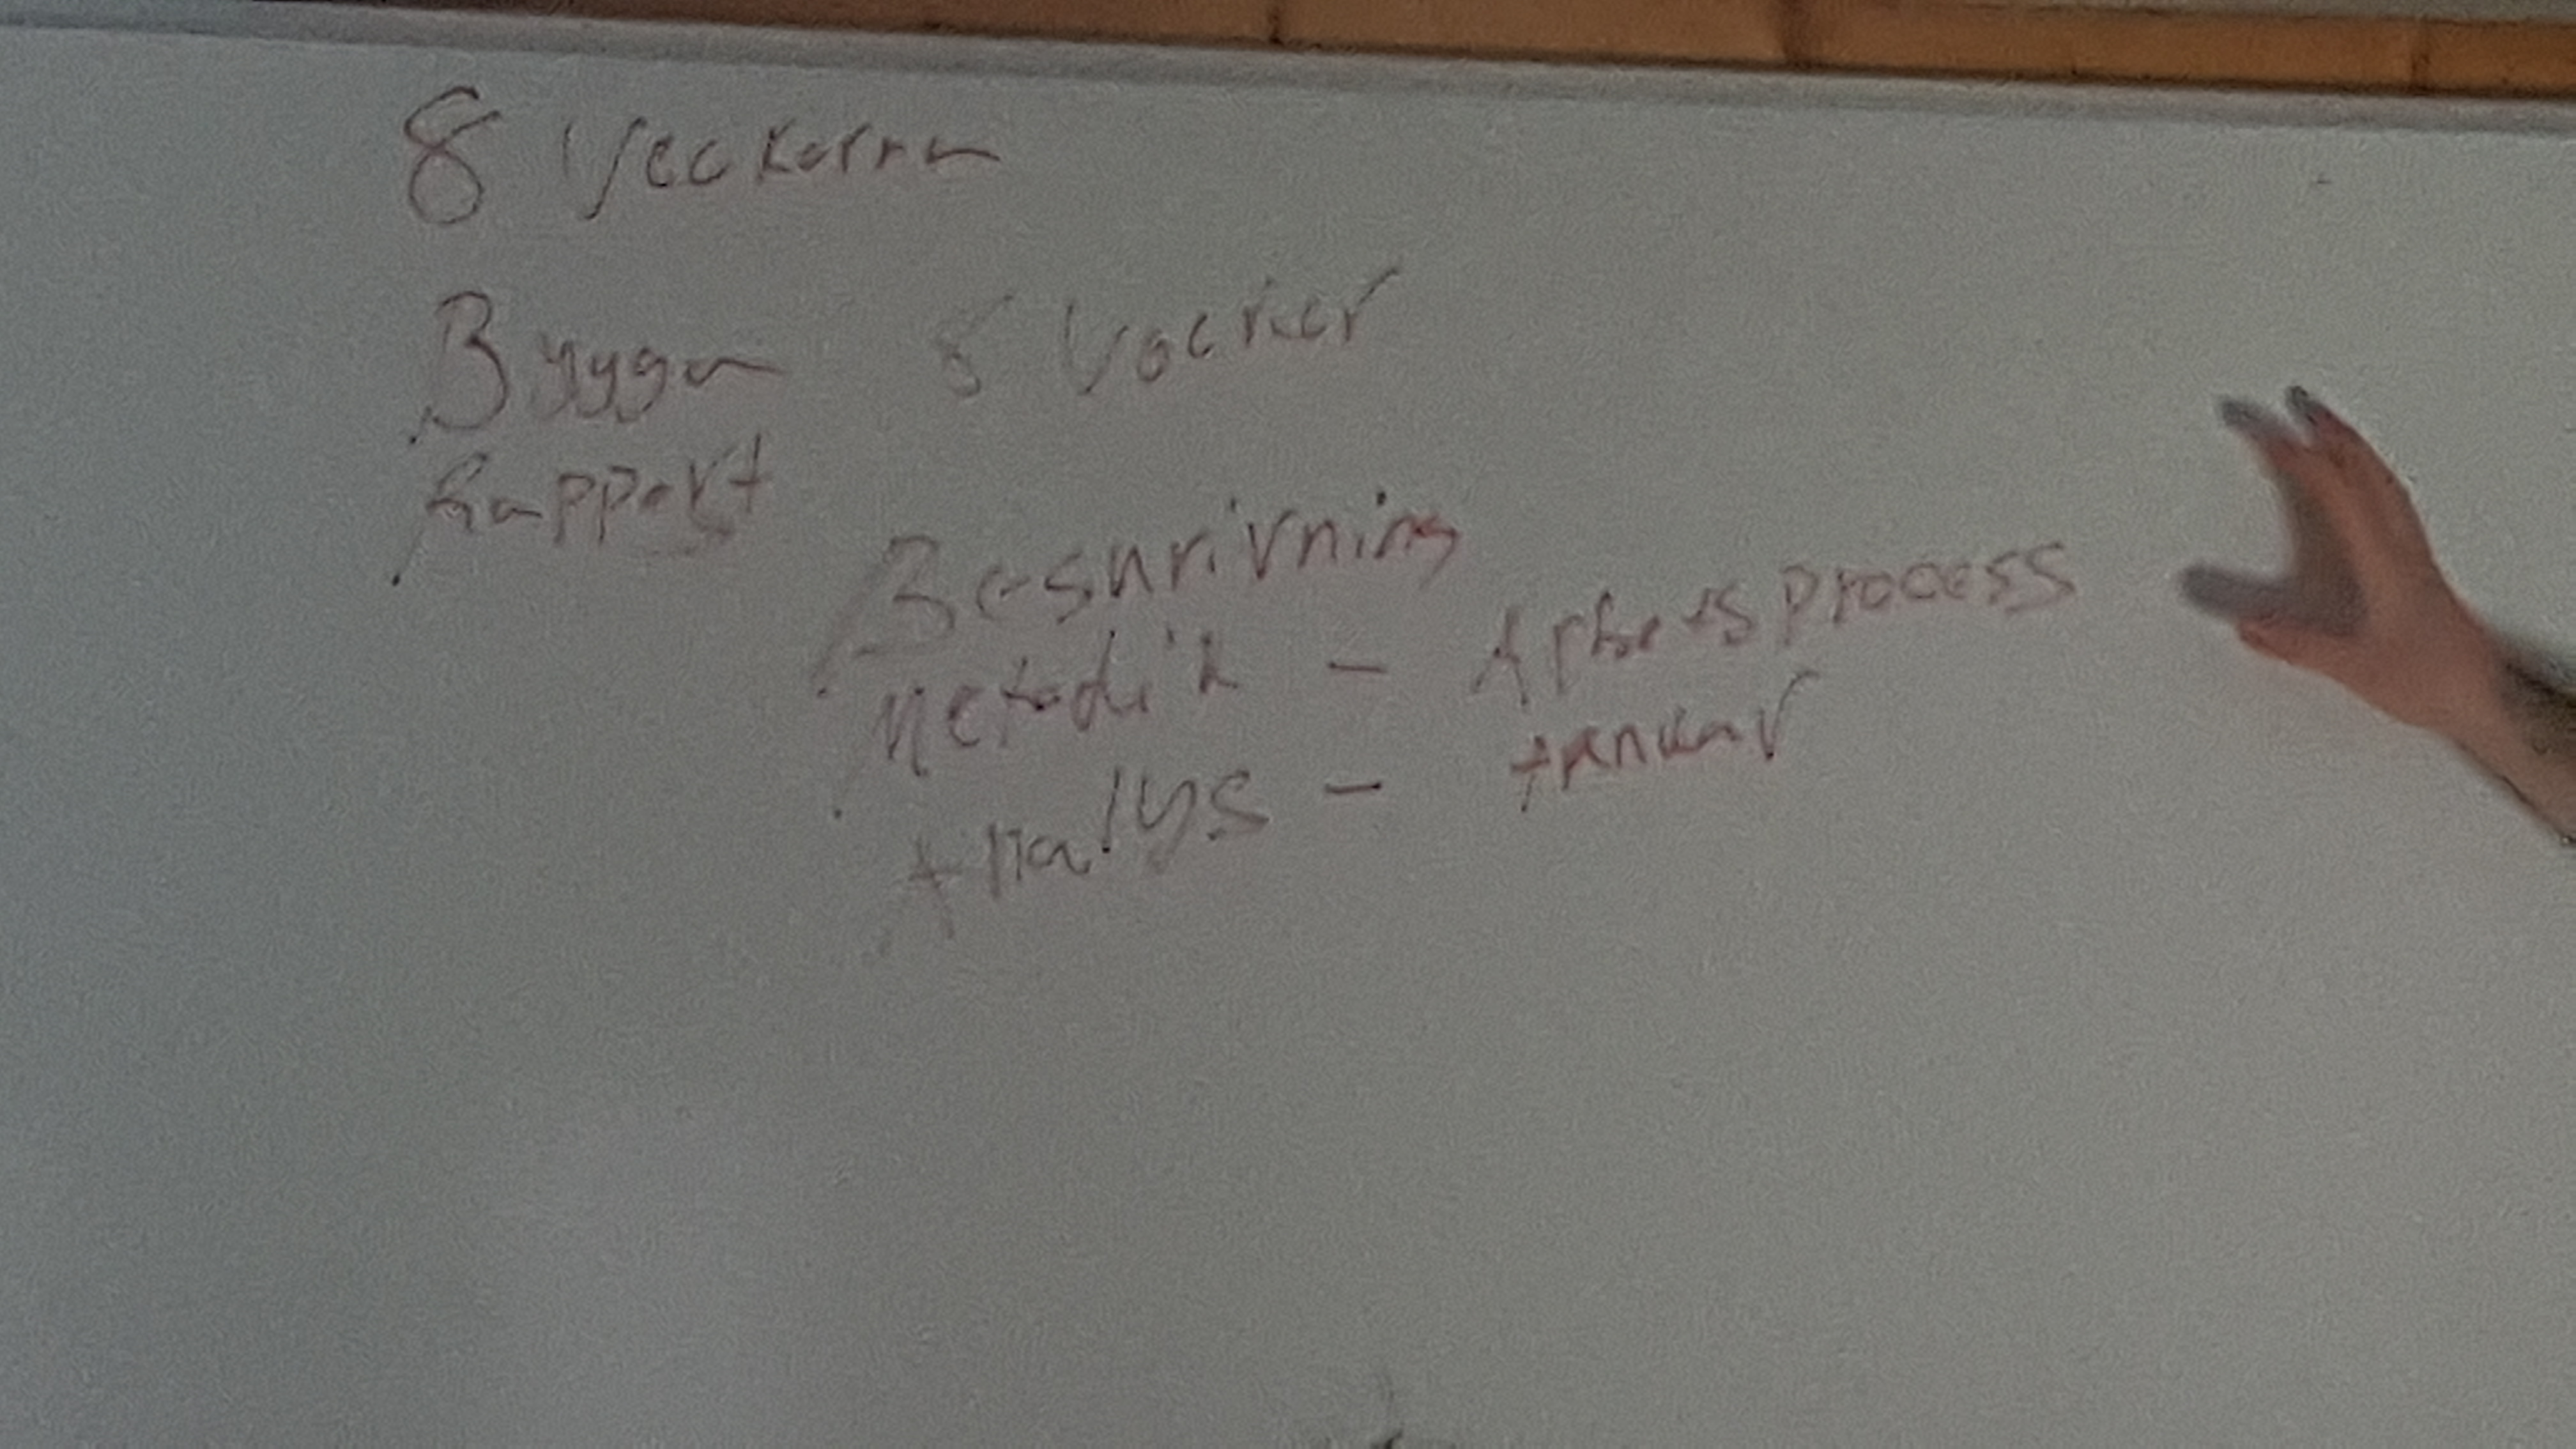 8 Veckorna
Bygga 8 Veckor
Rapport
Beskrivning
Metodik - Arbetsprocess
Analys - tankar